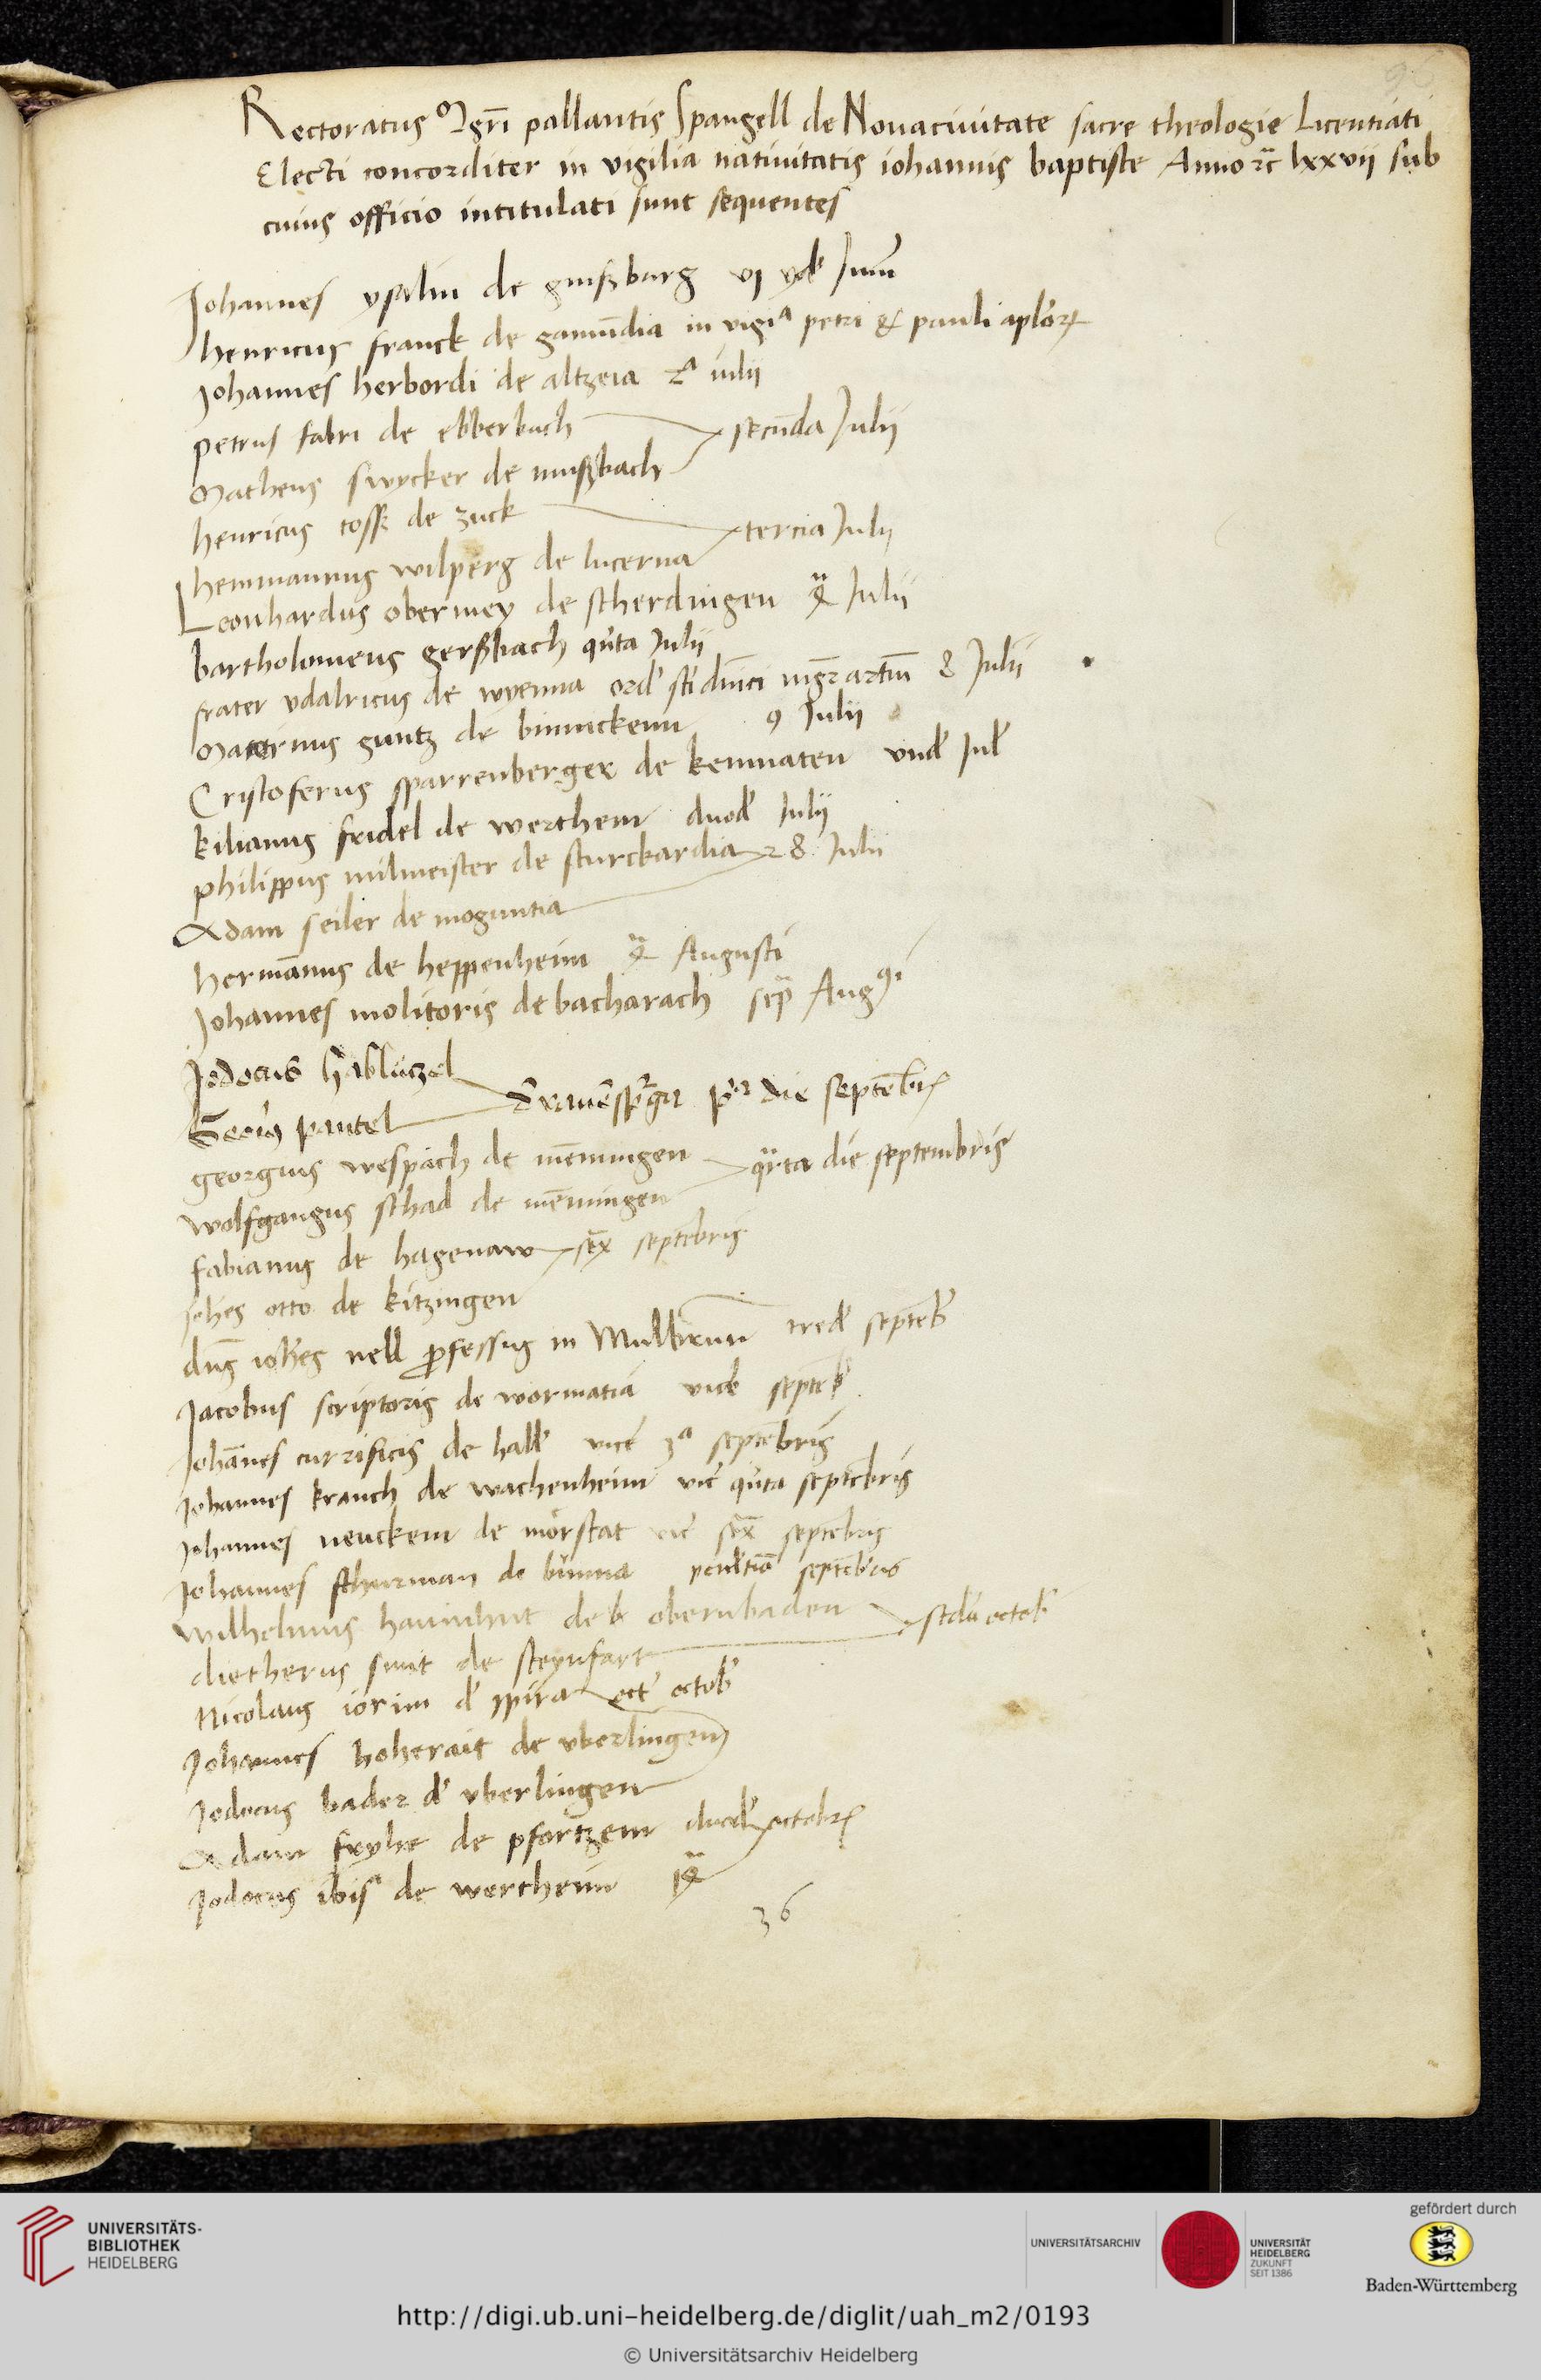 96
Rectoratus Mgri pallantis Spangell de Novacivitate sacre theologie Licentiati
Electi concorditer in vigilia nativitatis iohannis baptiste Anno rc lxxvii sub
cuius officio intitulati sunt sequentes
Johannes yselin de guntzburg vj yd Junii
henricus franck de gamundia in vigia petri & pauli aplorum
Johannes herbordi de altzeia 2a iulii
petrus fabri de ebberbach secunda Julii
Matheus swycker de mußbach
henricus toss de zuck
hemmannus wilperg de lucerna tercia Julii
Leonhardus obermey de scherdingen 4a Julii
bartholomeus gerßbach quta Julii
frater udalricus de wyenna ord sti dnici mgr artium 8 Julii
Maternus guntz de binnickem 9 Julii
Cristoferus sparrenberger de kemnaten und Jul
kilianus fridel de werthem duod Julii
philippus milmeister de sturckardia 28 Julii
Adam seiler de moguntia
hermannus de heppenheim 4a Augusti
Johannes molitoris de bacharach sepa Augusti
Jodocus hablützel
Georius pantel de ravenspurga pa die Septembris
georgius wespach de memmingen
wolfgangus schad de memmingen quarta die septembris
fabianus de hagenaw sex septembris
johes otto de kitzingen
dns iohes nell professus in Mulbrunn tred septemb
Jacobus scriptoris de wormatia vice septemb
Johannes currificis de hall vice 3a septembris
Johannes kranch de wachenheim vic quta septembris
Johannes neuckem de morstat vic sex septembris
Johannes schurman de bunna penultima septembris
wilhelmus de obernbaden scda octob
dietherus sint de steynfart
Nicolaus iorim d spira oct octob
Johannes hoherait de uberlingen
Jodocus bader d uberlingen
Adam fryhe de pfortzem duod octobris
Jodocus ibis de wertheim 14a
36
UNIVERSITÄTS-
BIBLIOTHEK
HEIDELBERG
UNIVERSITÄTSARCHIV
UNIVERSITÄT
HEIDELBERG
ZUKUNFT
SEIT 1386
gefördert durch
Baden-Württemberg
http://digi.ub.uni-heidelberg.de/diglit/uah_m2/0193
© Universitätsarchiv Heidelberg